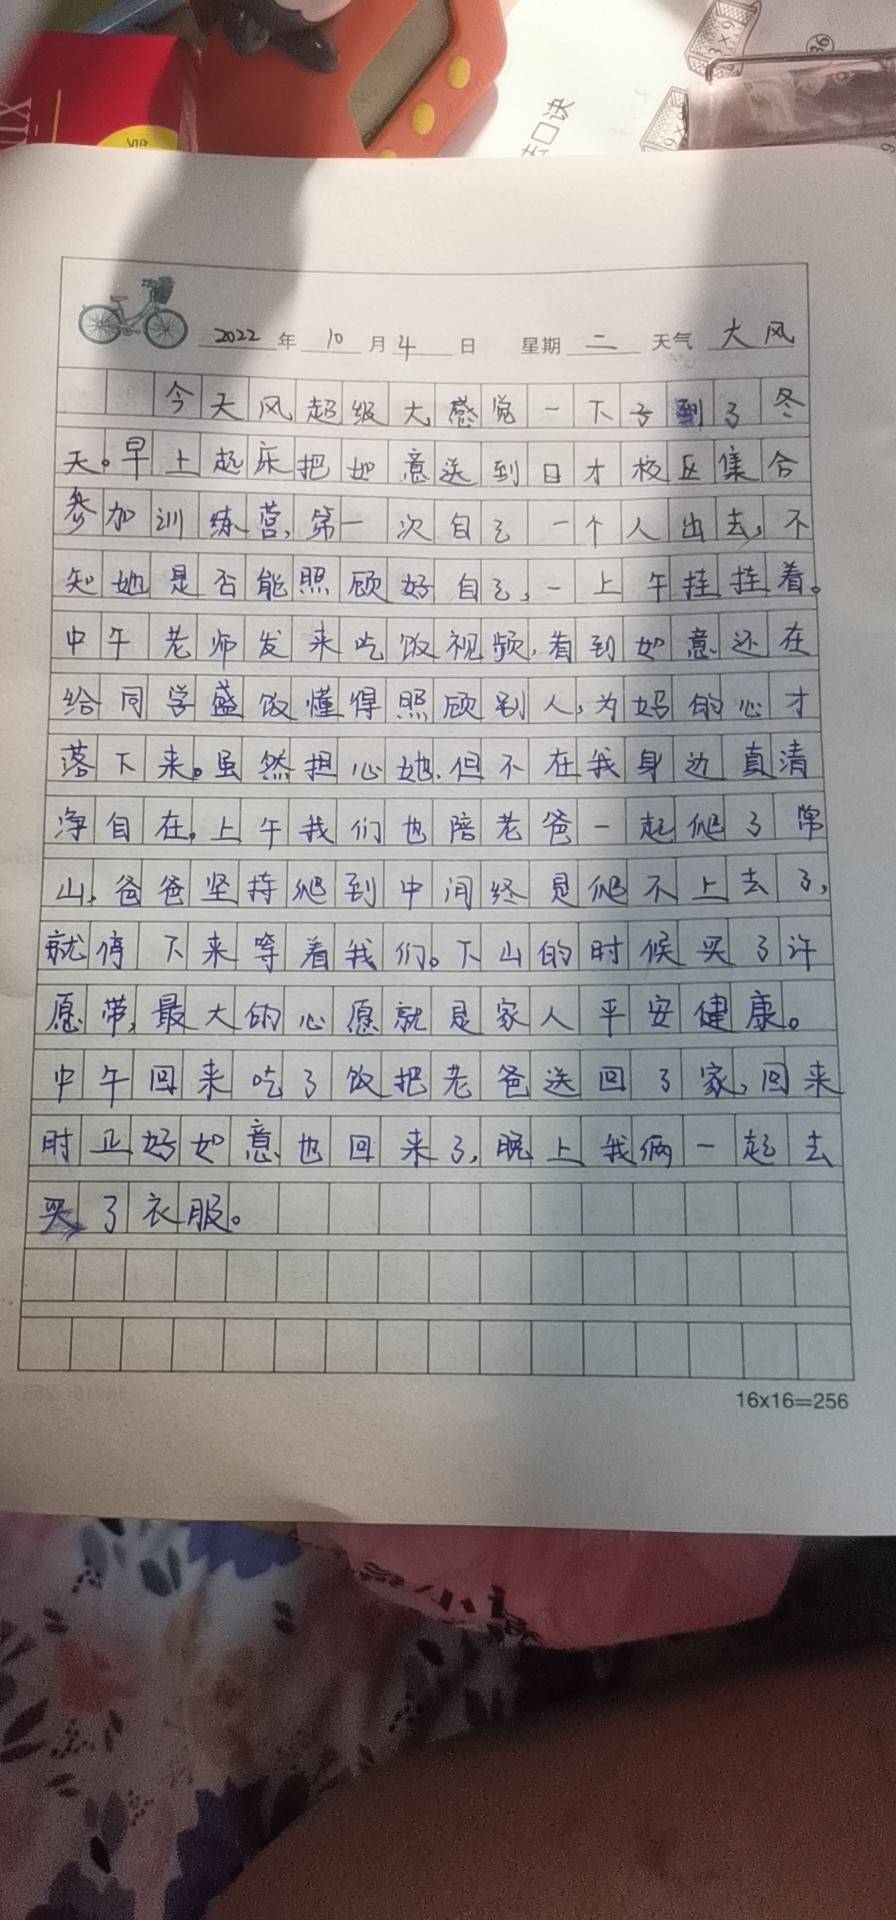 口诀
3×9
36
VIP
2022年10月4日 星期二 天气 大风
今天风超级大,感觉一下子到了冬
天。早上起床把如意送到日才校区集合
参加训练营,第一次自己一个人出去,不
知她是否能照顾好自己,一上午挂挂着。
中午老师发来吃饭视频,看到如意还在
给同学盛饭懂得照顾别人,为妈的心才
落下来。虽然担心她.但不在我身边真清
净自在。上午我们也陪老爸一起爬了常
山,爸爸坚持爬到中间终是爬不上去了,
就停下来等着我们。下山的时候买了许
愿带,最大的心愿就是家人平安健康。
中午回来吃了饭把老爸送回了家,回来
时正好如意也回来了,晚上我俩一起去
买了衣服。
16x16=256